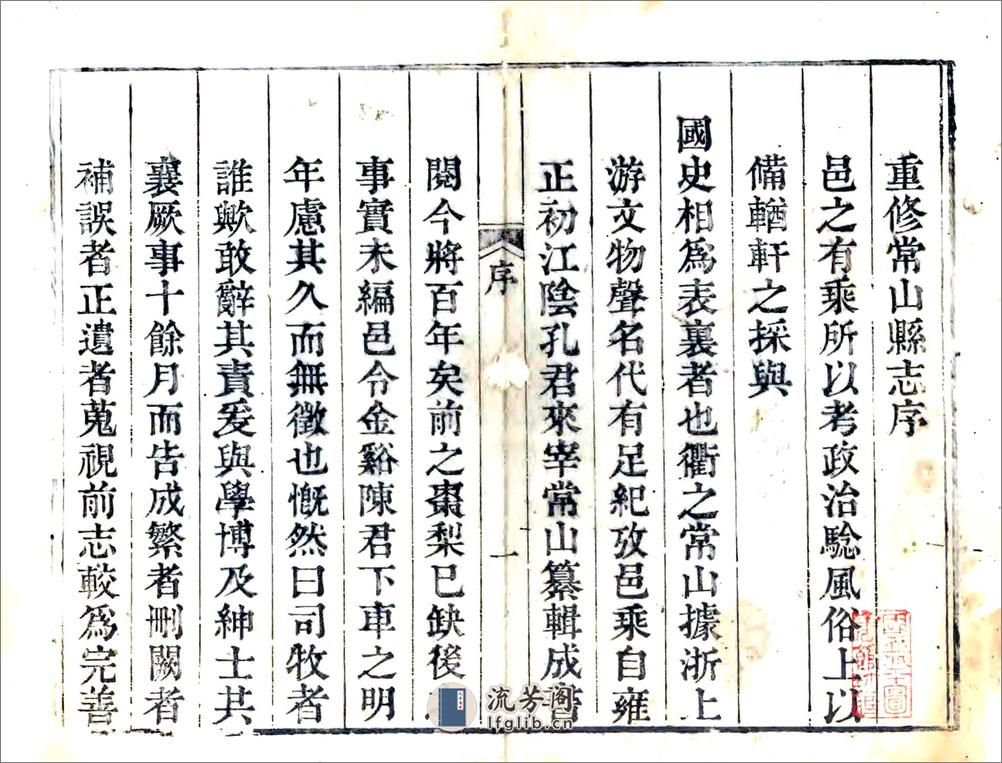 重修常山縣志序
邑之有乘所以考政治騐風俗上以
備輶軒之採與
國史相為表裏者也衢之常山據浙上
游文物聲名代有足紀攷邑乘自雍
正初江陰孔君來宰常山纂輯成
序
一
閱今將百年矣前之棗梨已缺後
事實未編邑令金谿陳君下車之明
年慮其久而無徵也慨然曰司牧者
誰歟敢辭其責爰與學博及紳士共
襄厥事十餘月而告成繁者刪闕者
補誤者正遺者蒐視前志較為完善
流芳閣
lfglib.cn